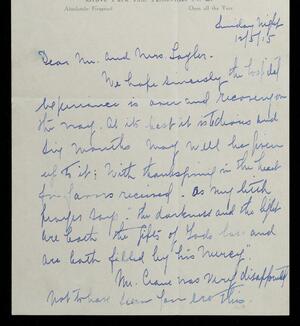 Grove Park Inn Asheville N.C.
Absolutely Fireproof Open all the Year
Sunday Night
12/5/15
Dear Mr. and Mrs. Saylor.
We hope sincerely the hospital
experience is over and recovery on
the way. At its best it is tedious and
six months may well be given
up to it; With thanksgiving in the heart
for favors received; as my little
prayer says: "the darkness and the light
are both the gifts of Gods love and
are both filled by his mercy."
Mr. Crane was very disappointed
not to have been